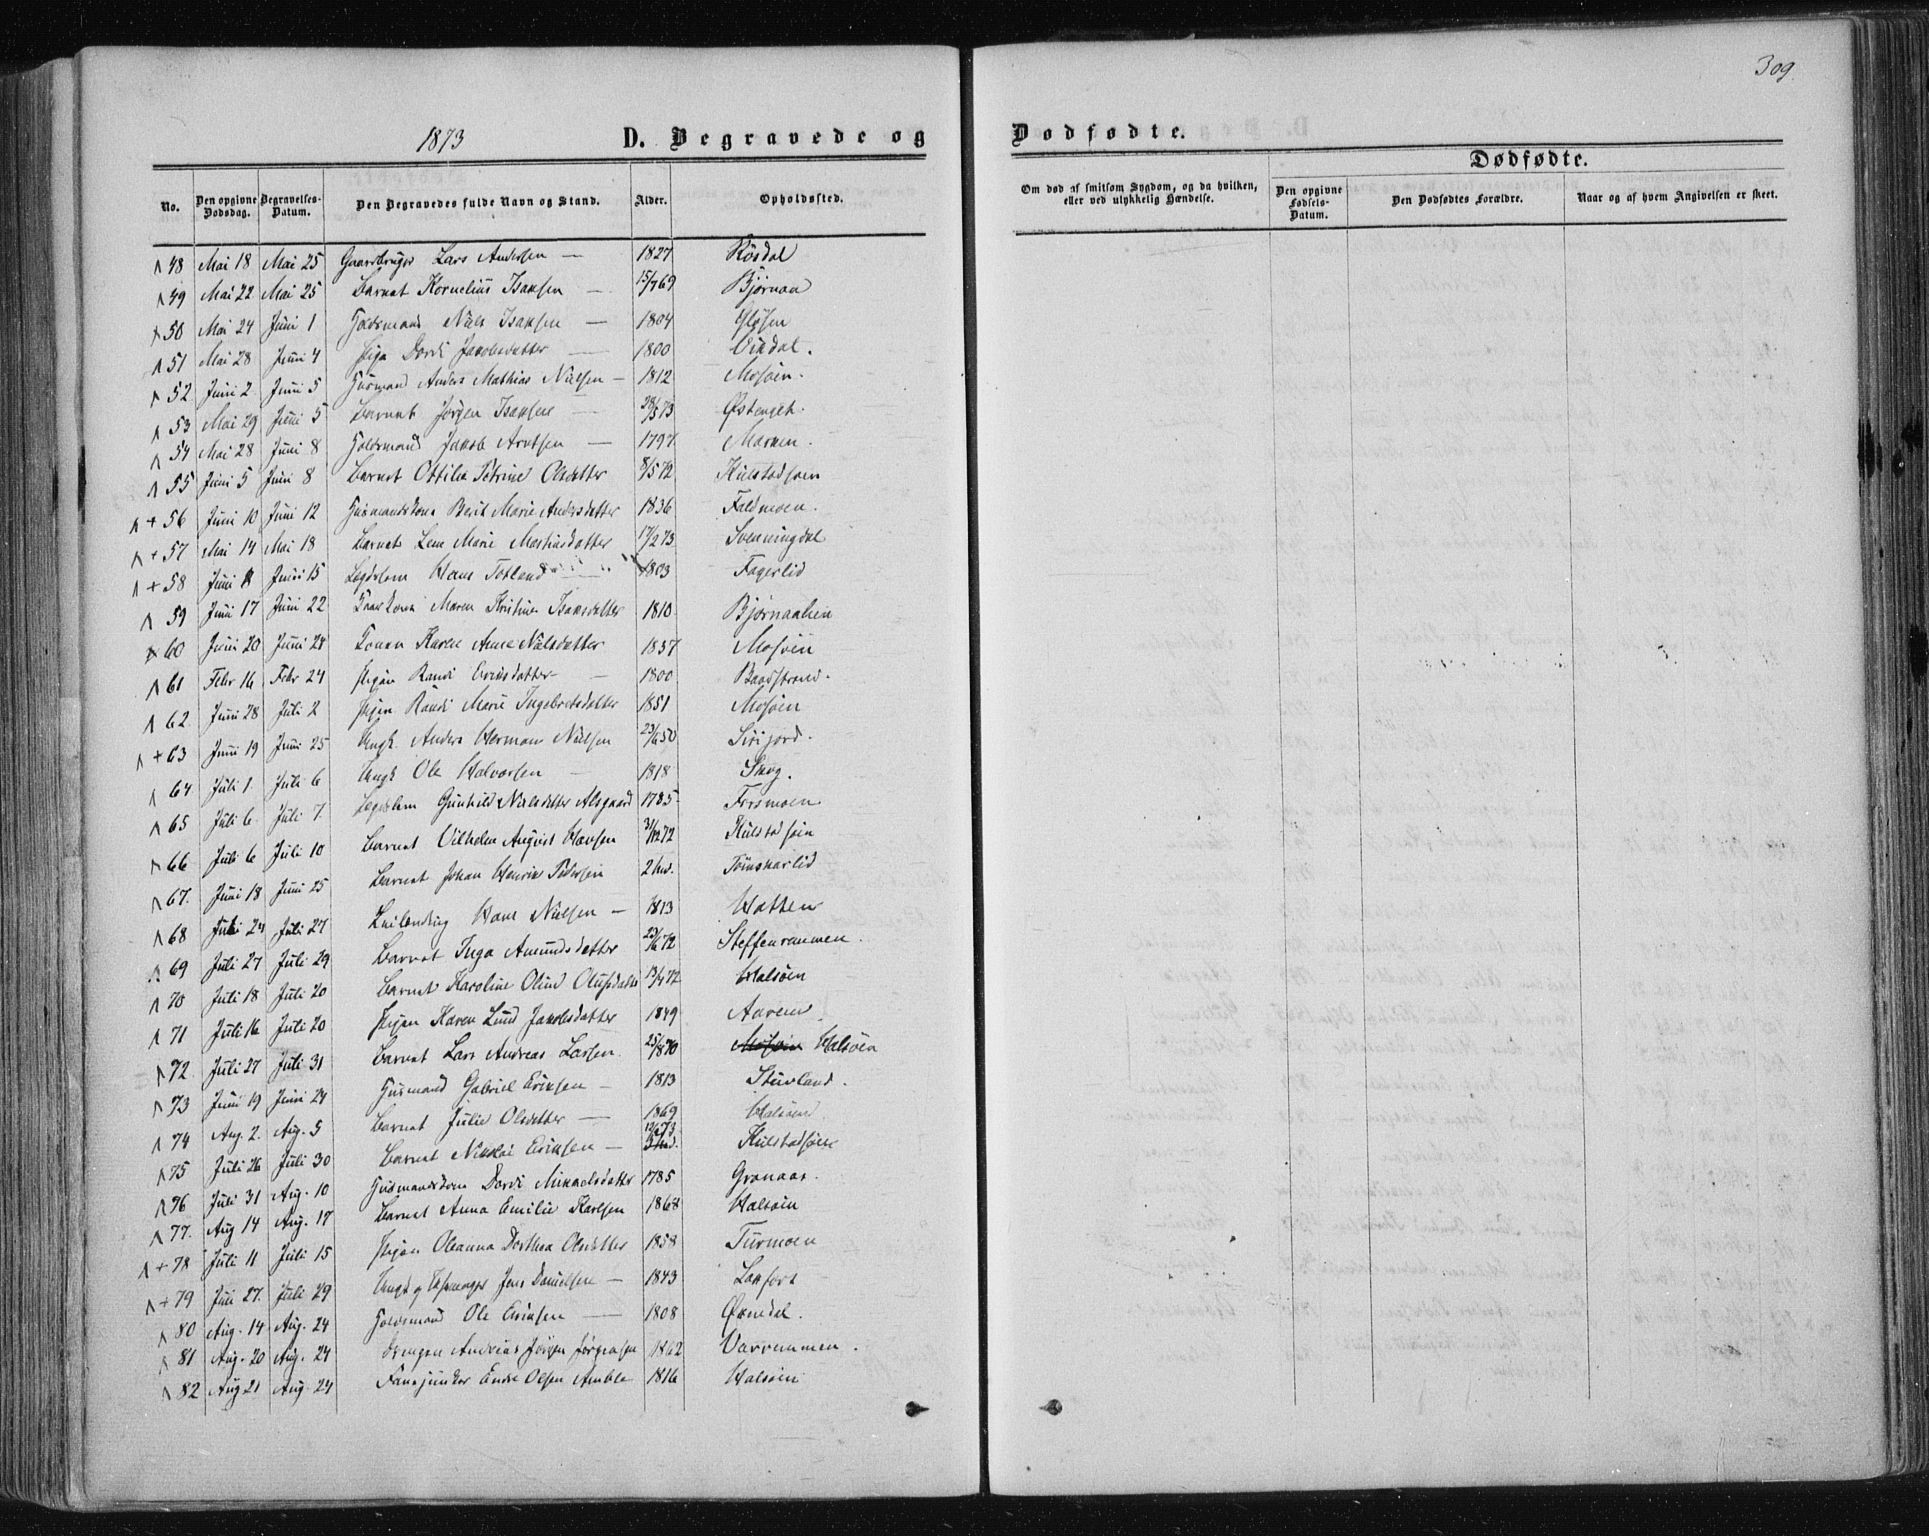 309.
1873 D. Begravede og Dødfødte.
Dødfødte.
No. Den opgivne Dødsdag. Begravelses-Datum. Den Begravedes fulde Navn og Stand. Alder. Opholdssted.
Om død af smitsom Sygdom, og da hvilken, eller ved ulykkelig Hændelse. Den opgivne Fødsels-Datum. Den Dødfødtes Forældre. Naar og af hvem Angivelsen er skeet.
48 Mai 18 Mai 25 Gaardbruger Lars Andersen — 1827 Røsdal
49 Mai 22 Mai 25 Barnet Kornelius Isaksen — 15/7 69 Bjørnaa
50 Mai 24 Juni 1 Husmand Niels Isaksen — 1804
51 Mai 28 Juni 4 Pige Dordi Jakobsdatter — 1800 Vikdal.
52 Juni 2 Juni 5 Husmand Anders Mathias Nielsen — 1812 Mosøen.
53 Mai 29 Juni 5 Barnet Jørgen Isaksen — 28/5 73 Østenget.
54 Mai 28 Juni 8 Jakob Arntsen — 1797 Marken.
55 Juni 5 Juni 8 Barnet Ottilie Petrine Olsdatter 8/5 72 Kulstadsøen
+ 56 Juni 10 Juni 12 Husmandskone Berit Marie Andersdatter 1836 Faldmoen.
+ 57 Mai 14 Mai 18 Barnet Lene Marie Martinsdatter 17/2 73 Svenningdal
+ 58 Juni Juni 15 Legdslem Hans Tofland 1803 Fagerlid
59 Juni 17 Juni 22 Maren Kristine Isaksdatter 1810 Bjørnaalien
60 Juni 20 Juni 28 Konen Karen Anne Nielsdatter 1837 Mosøen
61 Febr 16 Febr 24 Pigen Randi Eriksdatter — 1800 Baadstrand.
62 Juni 28 Juli 2 Pigen Randi Marie Ingebretsdatter 1851 Mosøen
+ 63 Juni 19 Juni 25 Ungk. Anders Herman Nielsen 23/6 50 Sirijord.
64 Juli 1. Juli 6 Ungk Ole Halvorsen — 1818 Skog.
65 Juli 6 Juli 7. Legdslem Gunhild Nielsdatter Alsgaard 1785 Forsmoen
66 Juli 6 Juli 10 Barnet Vilhelm August Hansen 31/12 72 Kulstadsøen
67. Juni 18 Juni 25 Barnet Johan Henrik Pedersen 2 Tømskarlid
68 Juli 24 Juli 27 Hans Nielsen — 1813 Hatten
69 Juli 27 Juli 29 Barnet Inga Amundsdatter 23/6 72 Steffenrammen.
70 Juli 18 Juli 20 Barnet Karoline Oline Olufsdatter 13/4 72 Halsøen
71 Juli 16 Juli 20 Pigen Karen Lund Jakobsdatter 1849 Aaren
72 Juli 27 Juli 31 Barnet Lars Andreas Larsen 25/8 70 Mosøen Halsøen
73 Juni 19 Juni 24 Husmand Gabriel Eriksen — 1813 Stuvland.
74 Aug. 2. Aug. 5 Barnet Julie Olsdatter — 1869 Halsøen
75 Juli 26 Juli 30 Barnet Nikolai Eriksen — 73 Kulstadsøen
76 Juli 31 Aug. 10 Husmandskone Dordi Mikkelsdatter 1785 Granaas.
77. Aug 14 Aug. 17 Barnet Anna Emilie Karlsen 1868 Halsøen
+ 78 Juli 11 Juli 15 Pigen Oleanna Dorthea Olsdatter 1858 Turmoen
+ 79 Juni 27. Juli 29 Jens Danielsen — 1843 Laksfors
80 Aug. 14 Aug. 24 Ole Eriksen — 1808 Øxendal.
81 Aug. 20 Aug. 24 Drengen Andreas Jørgen Jørgensen 1862 Vorrammen.
82 Aug 21 Aug. 24 Fanejunker Endre Olsen Amble 1816 Halsøen